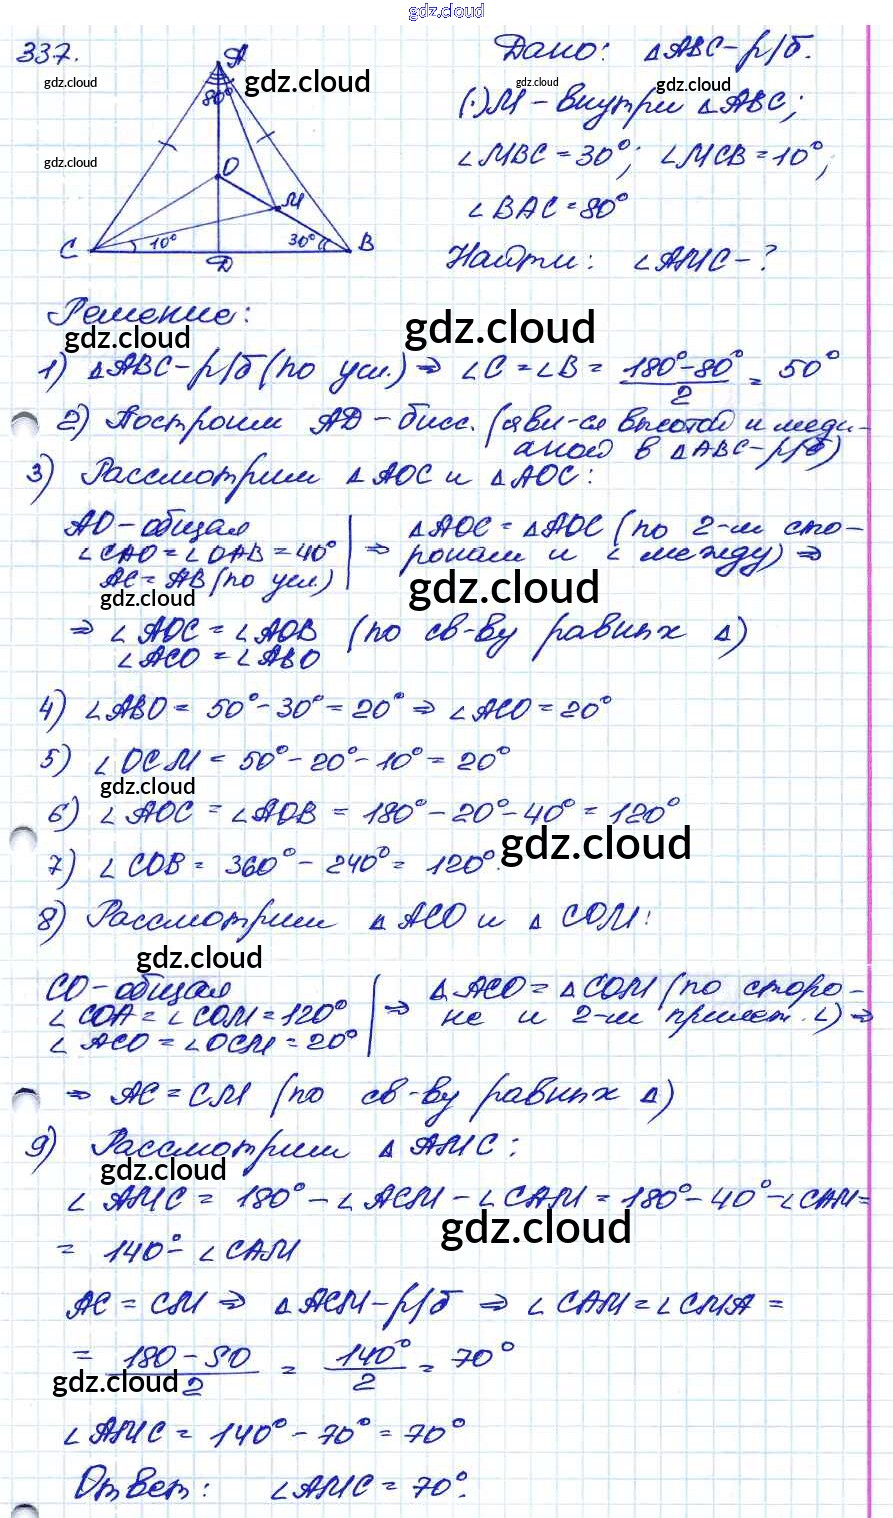 gdz.cloud
337.
Дано: △ABC-р/б.
gdz.cloud
gdz.cloud
gdz.cloud
gdz.cloud
A
80°
(·)M - внутри △ABC;
gdz.cloud
∠MBC = 30°; ∠MCB = 10°,
O
M
∠BAC = 80°
C
10°
30°
B
D
Найти: ∠AMC - ?
Решение:
gdz.cloud
gdz.cloud
1) △ABC-р/б (по усл.) ⇒ ∠C = ∠B = (180°-80°)/2 = 50°
2) Построим AD - бисс. (явл-ся высотой и меди-
аной в △ABC-р/б)
3) Рассмотрим △AOC и △AOC:
AO - общая
∠CAO = ∠OAB = 40°
AC = AB (по усл.)
⇒ △AOC = △AOC (по 2-м сто-
ронам и ∠ между) ⇒
gdz.cloud
gdz.cloud
⇒ ∠AOC = ∠AOB (по св-ву равных △)
∠ACO = ∠ABO
4) ∠ABO = 50° - 30° = 20° ⇒ ∠ACO = 20°
5) ∠OCM = 50° - 20° - 10° = 20°
gdz.cloud
6) ∠AOC = ∠AOB = 180° - 20° - 40° = 120°
gdz.cloud
7) ∠COB = 360° - 240° = 120°.
8) Рассмотрим △ACO и △COM:
gdz.cloud
CO - общая
∠COA = ∠COM = 120°
∠ACO = ∠OCM = 20°
⇒ △ACO = △COM (по сторо-
не и 2-м прилеж. ∠) ⇒
⇒ AC = CM (по св-ву равных △)
9) Рассмотрим △AMC:
gdz.cloud
∠AMC = 180° - ∠ACM - ∠CAM = 180° - 40° - ∠CAM =
gdz.cloud
= 140° - ∠CAM
AC = CM ⇒ △ACM-р/б ⇒ ∠CAM = ∠CMA =
= (180-50)/2 = 140°/2 = 70°
gdz.cloud
∠AMC = 140° - 70° = 70°
Ответ: ∠AMC = 70°.